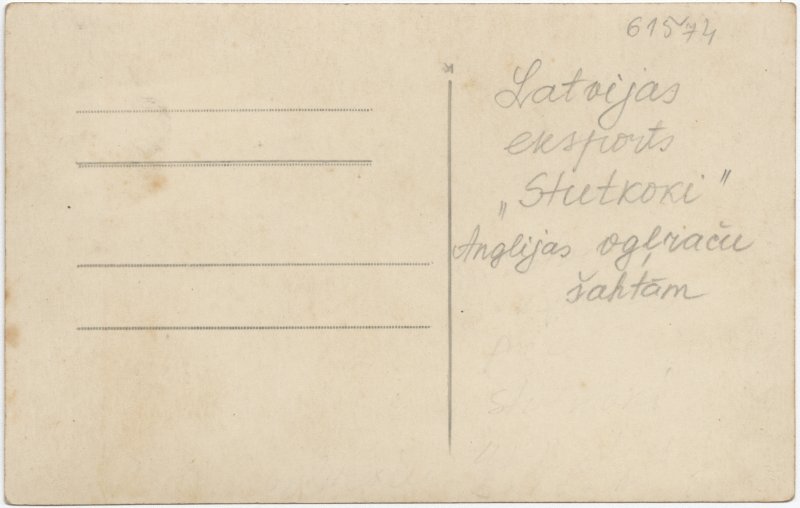 61574
Latvijas
eksports
„Stutkoki"
Anglijas ogļraču
šahtām